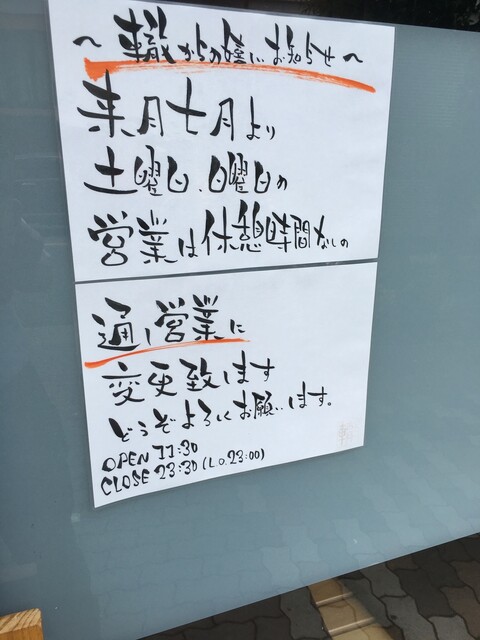 ～轍からの嬉しいお知らせ～
来月七月より
土曜日、日曜日の
営業は休憩時間なしの
通し営業に
変更致します
どうぞよろしくお願いします。
OPEN 11:30
CLOSE 23:30(L.O.23:00)